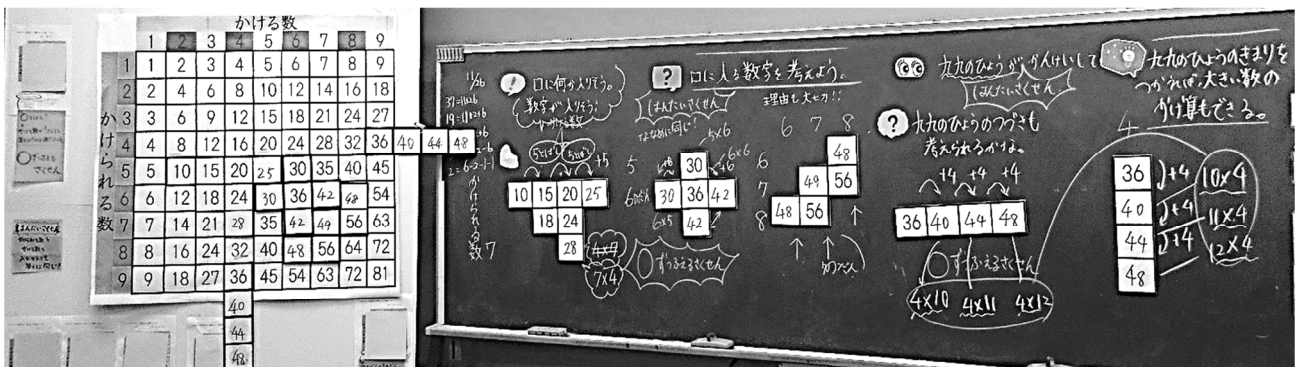 かける数
1 2 3 4 5 6 7 8 9
かけられる数
1 1 2 3 4 5 6 7 8 9
2 2 4 6 8 10 12 14 16 18
3 3 6 9 12 15 18 21 24 27
4 4 8 12 16 20 24 28 32 36 40 44 48
5 5 10 15 20 25 30 35 40 45
6 6 12 18 24 30 36 42 48 54
7 7 14 21 28 35 42 49 56 63
8 8 16 24 32 40 48 56 64 72
9 9 18 27 36 45 54 63 72 81
40
44
48
11/26
かけられる数 7
口に何が入りそう。
数字が入りそう!
5とばし 5とばし +5
10 15 20 25
18 24
28
4×7
7×4
口に入る数字を考えよう。
理由も大せつ!!
はんたいさくせん
ななめに同じ!
5×6
6×6
5
30
6のだん 30 36 42
42
6×5
○ずつふえるさくせん
6 7 8
6 7 8
48
49 56
48 56
九九のひょうがかんけいして
はんたいさくせん
九九のひょうのつづきも
考えられるかな。
+4 +4 +4
36 40 44 48
○ずつふえるさくせん
4×10 4×11 4×12
九九のひょうのきまりを
つかえば、大きい数の
かけ算もできる。
4
36
40
44
48
+4
+4
+4
10×4
11×4
12×4